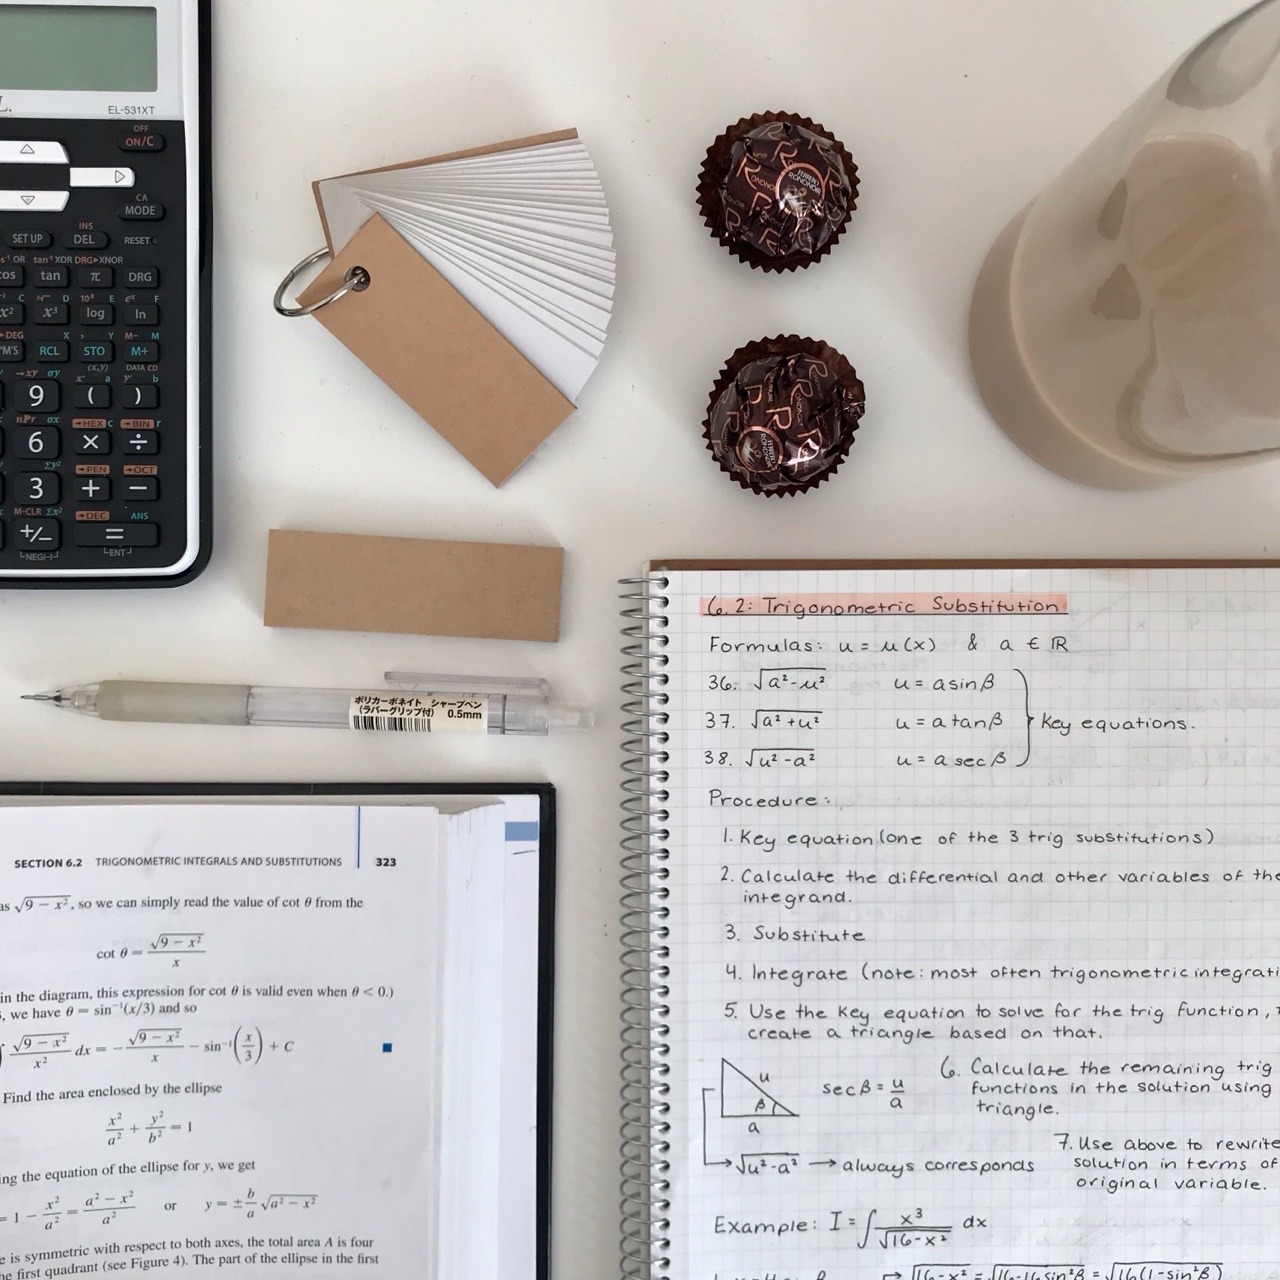 EL-531XT
OFF
ON/C
CA
MODE
INS
SET UP DEL RESET
tan⁻¹ XOR DRG▸XNOR
tan π DRG
D 10ˣ E eˣ F
x² x³ log ln
X , Y M− M
RCL STO M+
(x,y) DATA CD
→xy σy x' a y' b
9 ( )
nPr σx →HEX c →BIN r
6 × ÷
Σy² →PEN →OCT
3 + −
M-CLR Σx² →DEC ANS
+/− =
(NEG(−)) ENT
FERRERO RONDNOIR
FERRERO RONDNOIR
ポリカーボネイト シャープペン
(ラバーグリップ付) 0.5mm
SECTION 6.2 TRIGONOMETRIC INTEGRALS AND SUBSTITUTIONS 323
as √9 − x², so we can simply read the value of cot θ from the
cot θ = √9 − x² / x
in the diagram, this expression for cot θ is valid even when θ < 0.)
, we have θ = sin⁻¹(x/3) and so
∫ √9 − x² / x² dx = − √9 − x² / x − sin⁻¹(x/3) + C
Find the area enclosed by the ellipse
x²/a² + y²/b² = 1
ing the equation of the ellipse for y, we get
= 1 − x²/a² = a² − x² / a² or y = ± b/a √a² − x²
e is symmetric with respect to both axes, the total area A is four
he first quadrant (see Figure 4). The part of the ellipse in the first
6.2: Trigonometric Substitution
Formulas: u = u(x) & a ∈ ℝ
36. √a²-u² u = a sin β
37. √a²+u² u = a tan β Key equations.
38. √u²-a² u = a sec β
Procedure:
1. Key equation (one of the 3 trig substitutions)
2. Calculate the differential and other variables of the
integrand.
3. Substitute
4. Integrate (note: most often trigonometric integrati
5. Use the key equation to solve for the trig function,
create a triangle based on that.
u β a
sec β = u/a
6. Calculate the remaining trig
functions in the solution using
triangle.
√u²-a² → always corresponds
7. Use above to rewrite
solution in terms of
original variable.
Example: I = ∫ x³ / √16-x² dx
→ √16-x² = √16-16 sin²β = √16(1-sin²β)